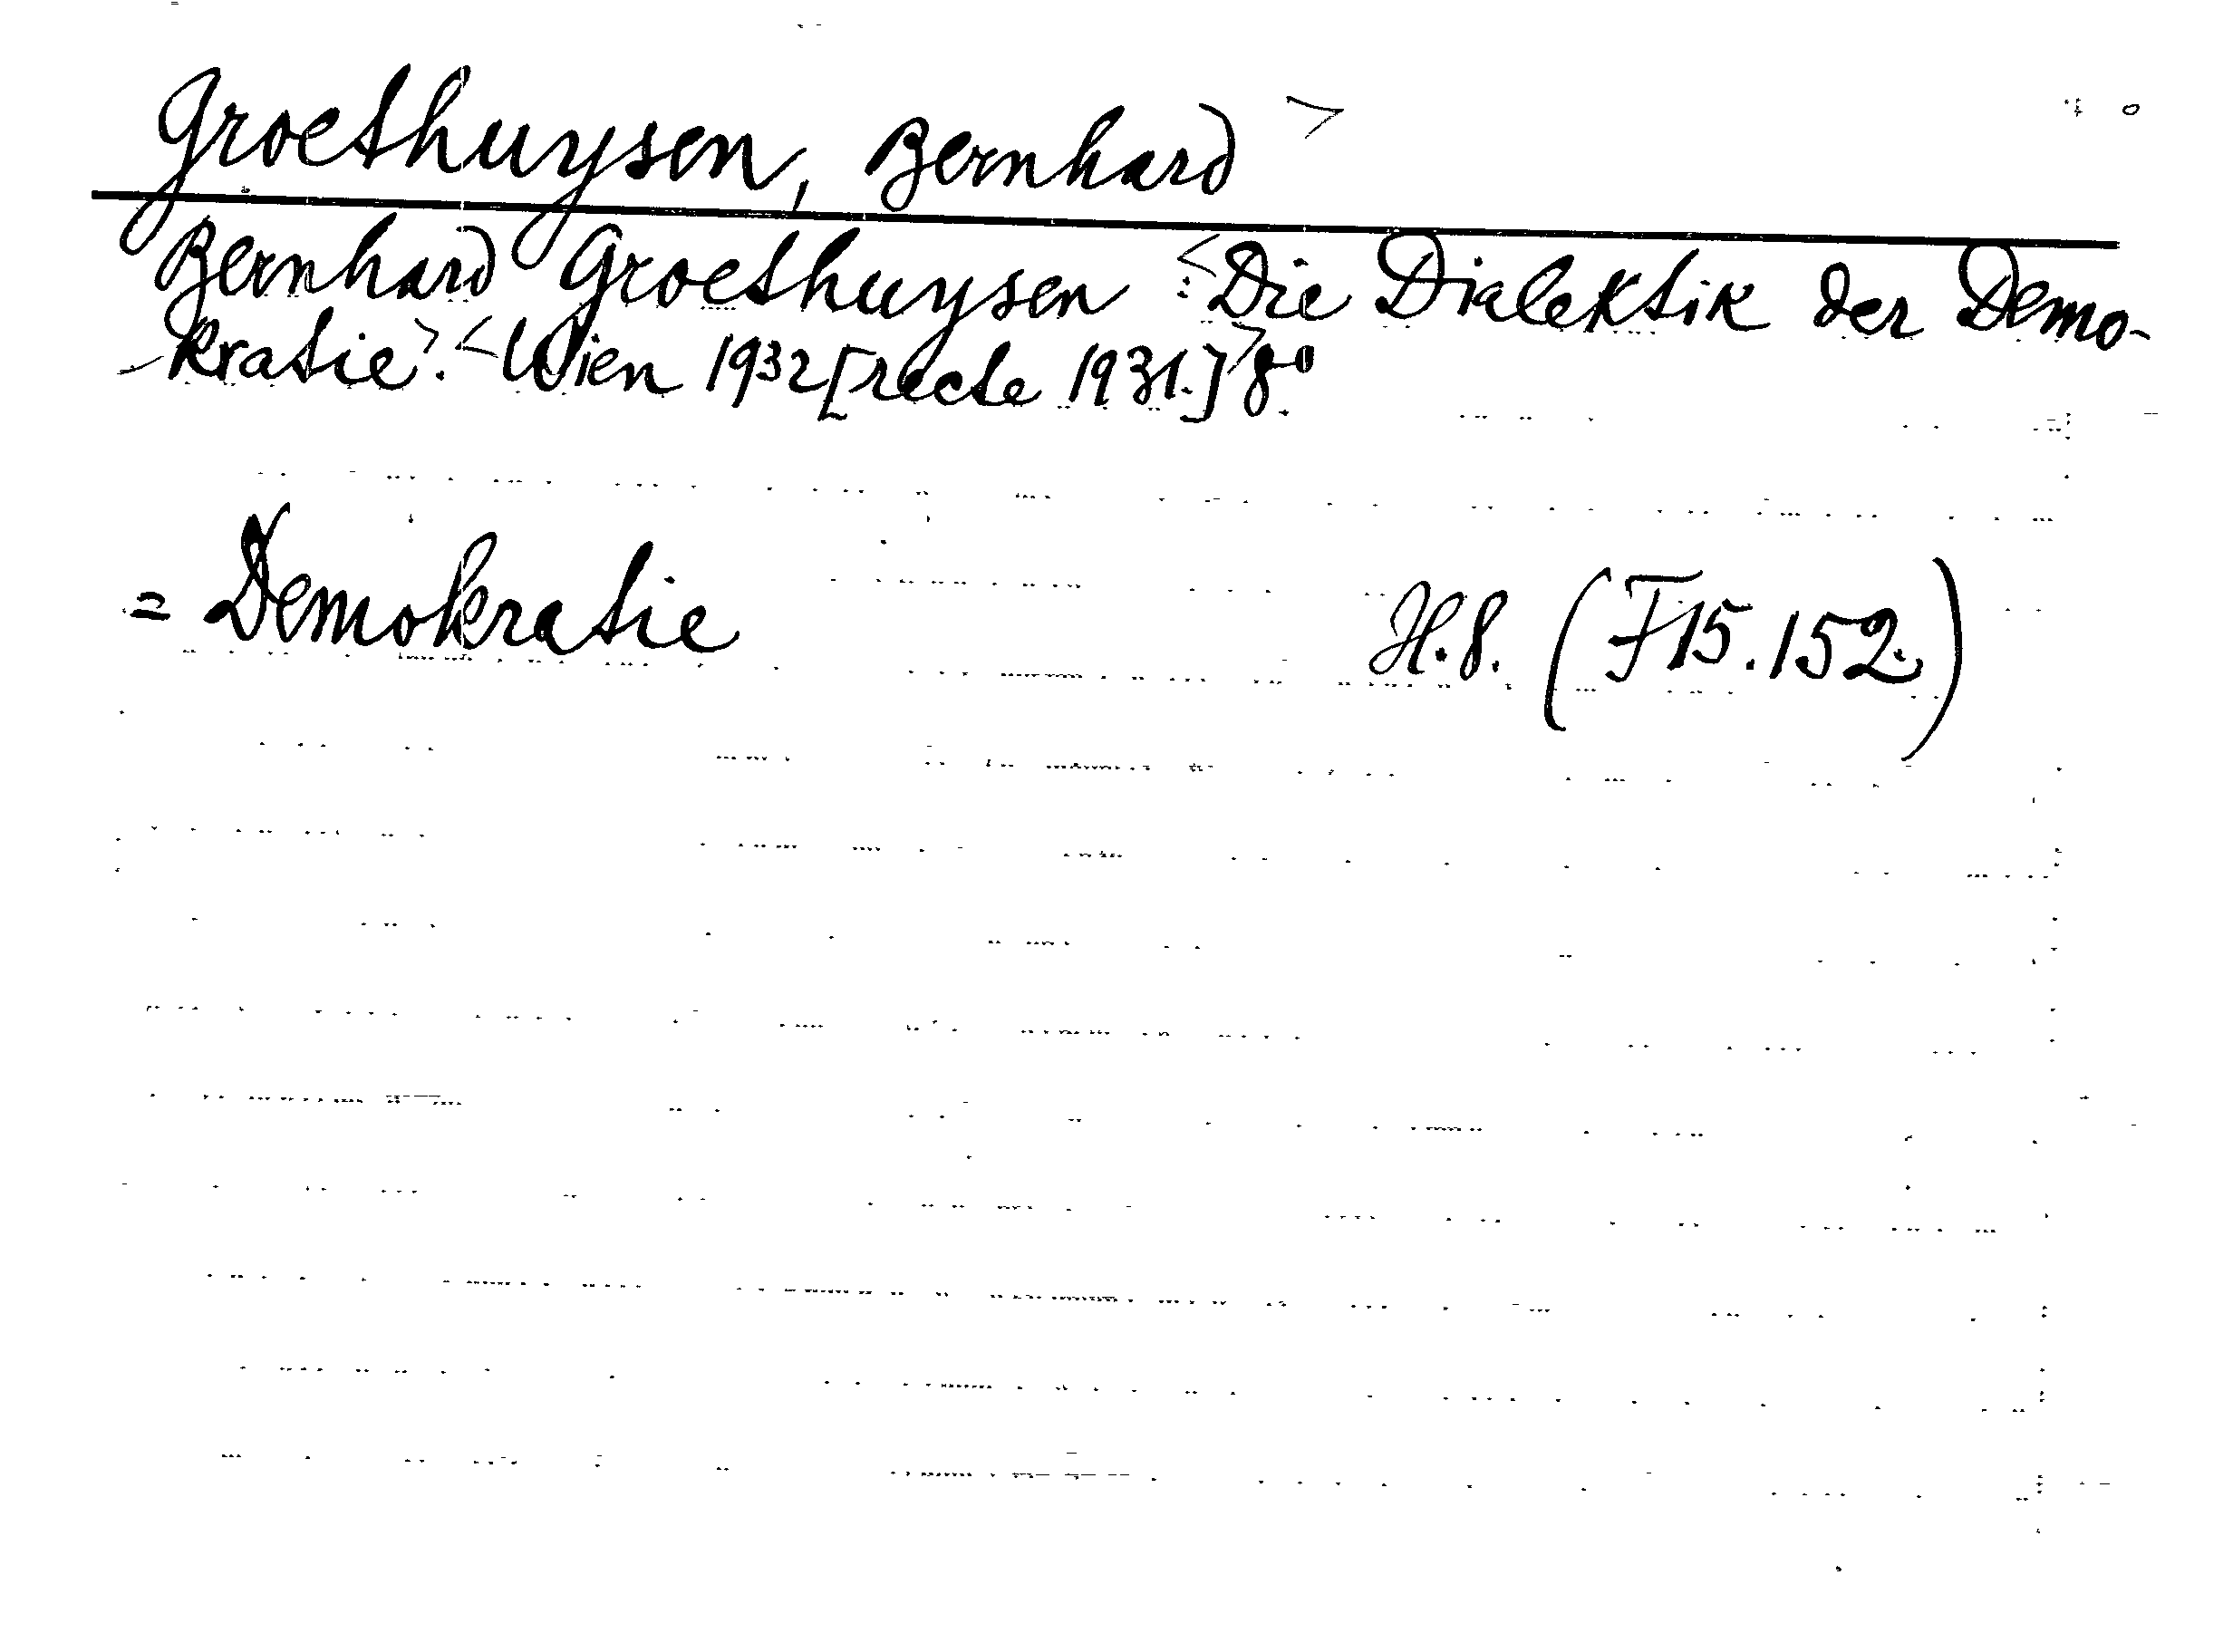 Groethuysen, Bernhard >
Bernhard Groethuysen : <Die Dialektik der Demo-
-kratie>. <Wien 1932 [recte 1931.]> 8°
= Demokratie H.8. (F15.152.)